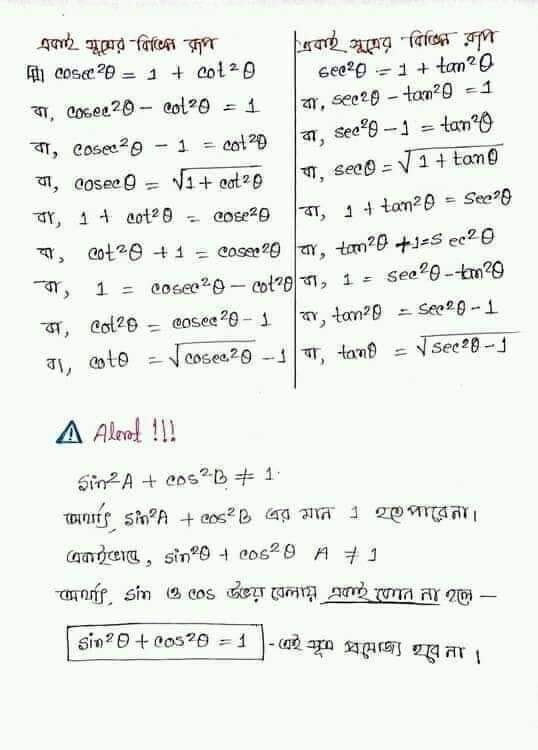 একই সূত্রের বিভিন্ন রূপ
cosec²θ = 1 + cot²θ
বা, cosec²θ - cot²θ = 1
বা, cosec²θ - 1 = cot²θ
বা, cosecθ = √1 + cot²θ
বা, 1 + cot²θ = cose²θ
বা, cot²θ + 1 = cosec²θ
বা, 1 = cosec²θ - cot²θ
বা, cot²θ = cosec²θ - 1
বা, cotθ = √cosec²θ - 1
একই সূত্রের বিভিন্ন রূপ
sec²θ = 1 + tan²θ
বা, sec²θ - tan²θ = 1
বা, sec²θ - 1 = tan²θ
বা, secθ = √1 + tanθ
বা, 1 + tan²θ = Sec²θ
বা, tan²θ +1=Sec²θ
বা, 1 = sec²θ - tan²θ
বা, tan²θ = sec²θ - 1
বা, tanθ = √sec²θ - 1
Alert !!!
Sin²A + cos²B ≠ 1.
অর্থাৎ, sin²A + cos²B এর মান 1 হতে পারেনা।
একইভাবে, sin²θ + cos²θ A ≠ 1
অর্থাৎ, sin ও cos উভয় বেলায় একই কোন না হলে —
sin²θ + cos²θ = 1 - এই সূত্র প্রযোজ্য হবে না।